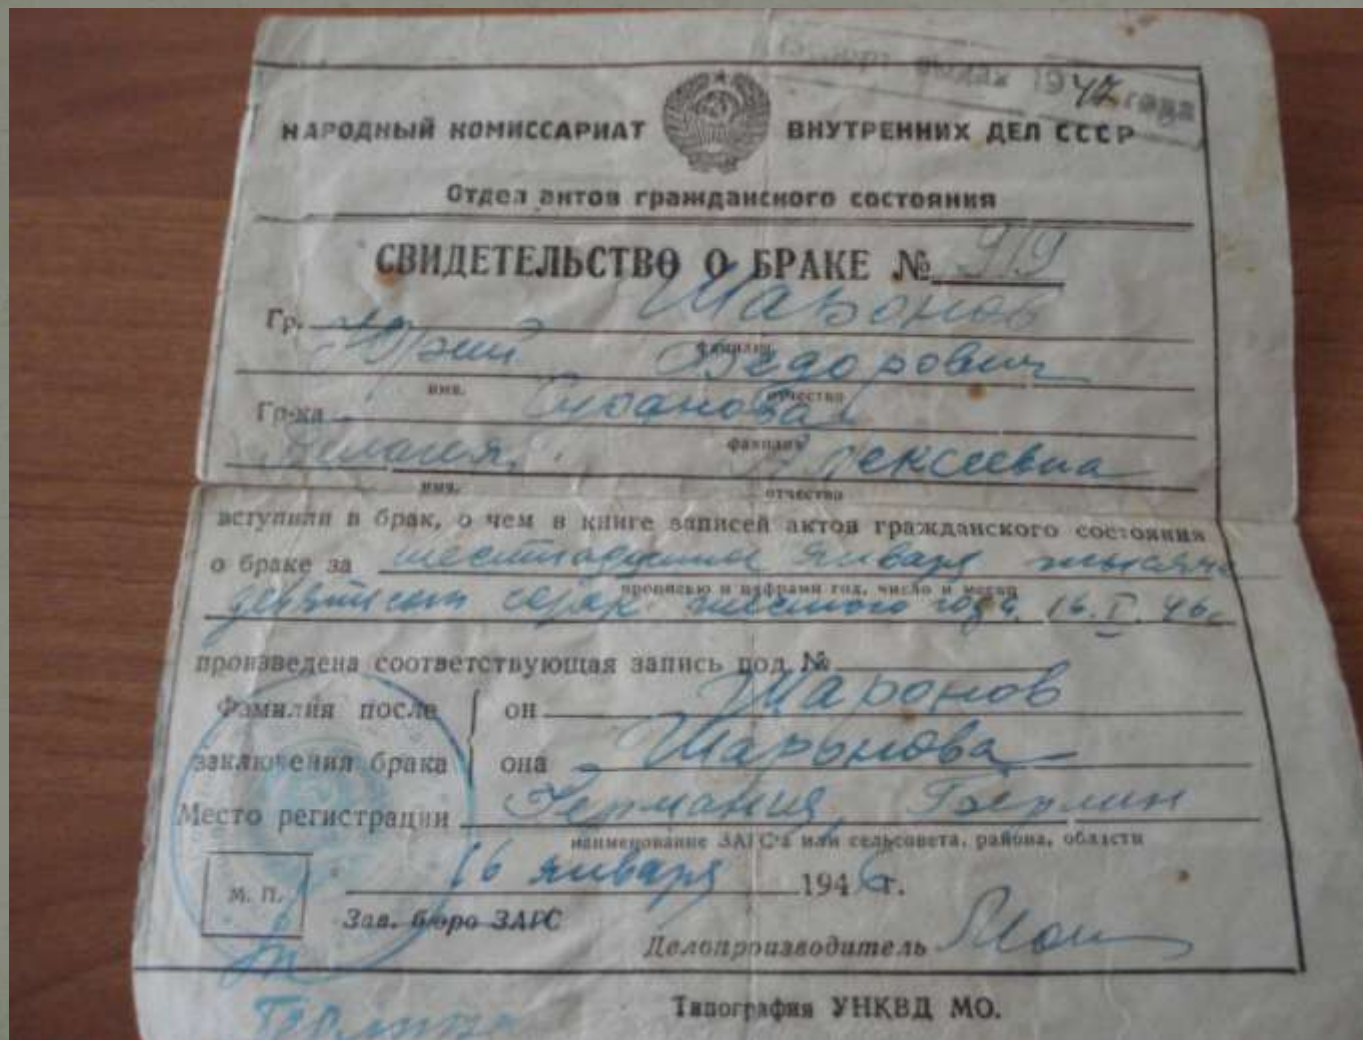 паспорт выдан 1947 года
НАРОДНЫЙ КОМИССАРИАТ ВНУТРЕННИХ ДЕЛ СССР
Отдел актов гражданского состояния
СВИДЕТЕЛЬСТВО О БРАКЕ № 919
Гр. Шаронов
фамилия
Юрий Федорович
имя. отчество
Гр-ка
фамилия
Алексеевна
имя. отчество
вступили в брак, о чем в книге записей актов гражданского состояния
о браке за шестнадцатое января тысяча
прописью и цифрами год, число и месяц
девятьсот сорок шестого года. 16.I.46г
произведена соответствующая запись под №
Фамилия после он Шаронов
заключения брака она Шаронова
Место регистрации Германия, Берлин
наименование ЗАГС'а или сельсовета, района, области
16 января 1946г.
М. П.
Зав. бюро ЗАГС
Делопроизводитель
Типография УНКВД МО.